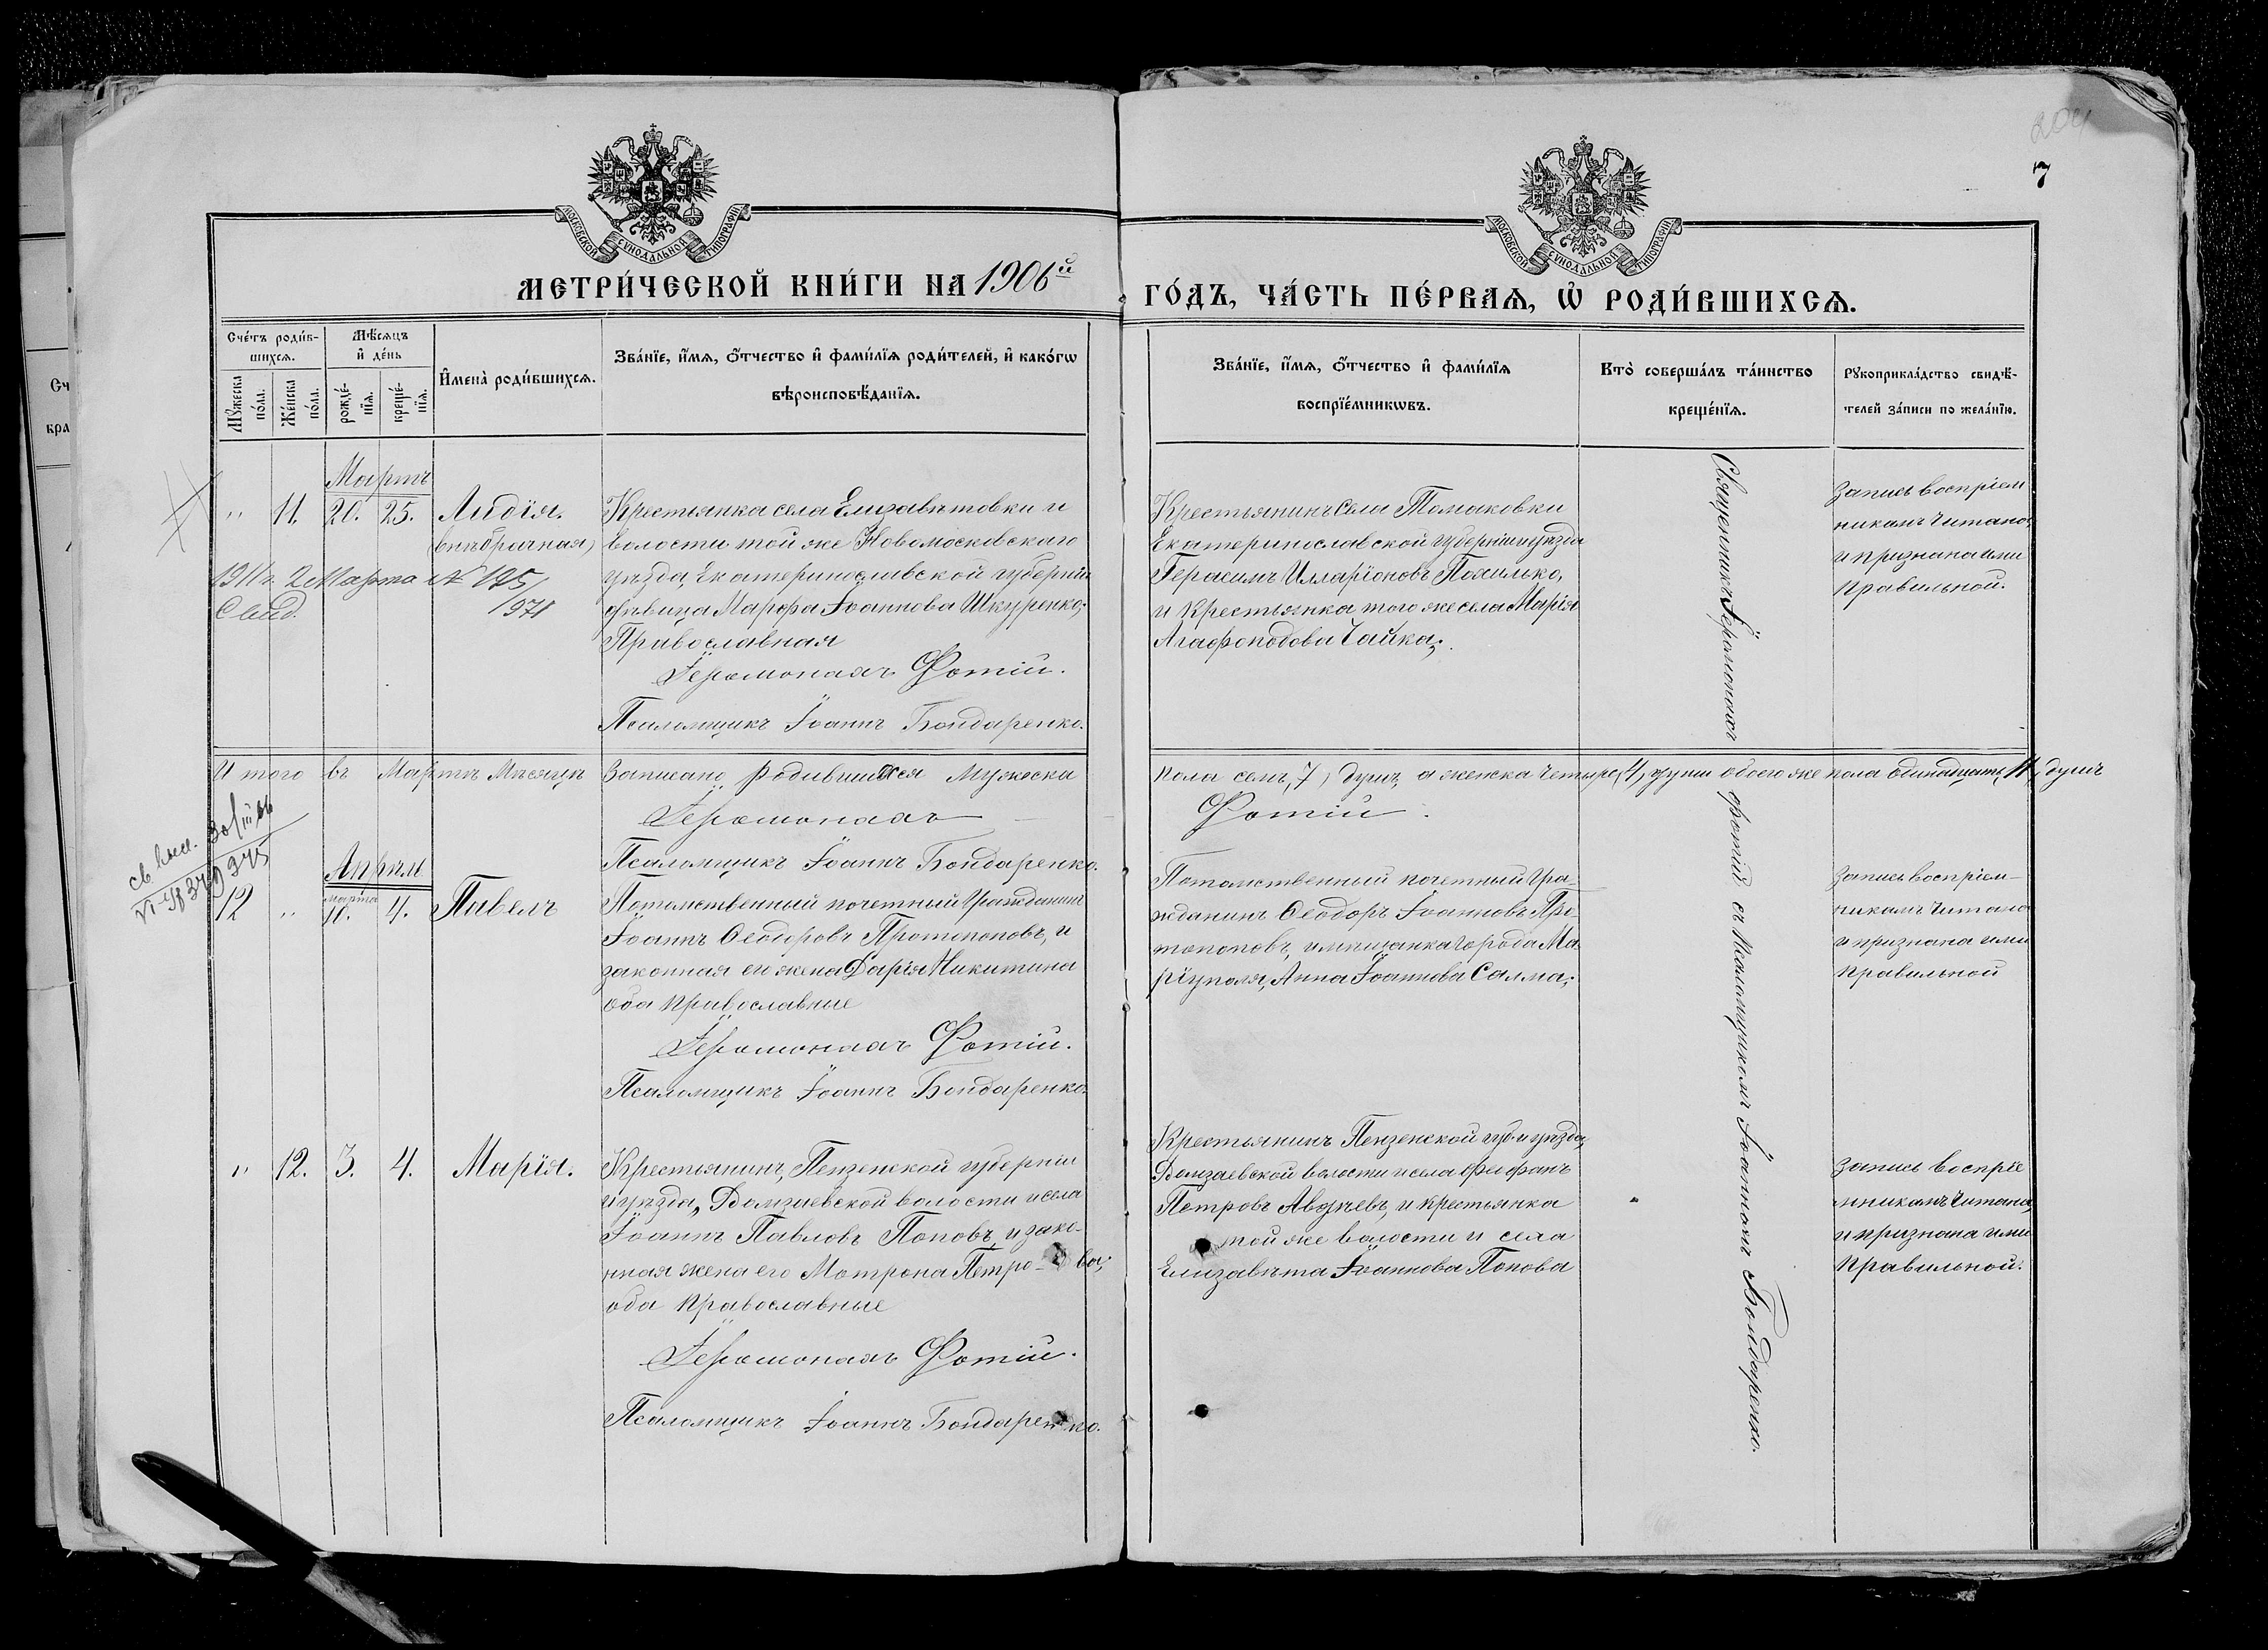 7
МОСКОВСКОЙ СѴНОДАЛЬНОЙ ТИПОГРАФІИ
МОСКОВСКОЙ СѴНОДАЛЬНОЙ ТИПОГРАФІИ
МЕТРИ́ЧЕСКОЙ КНИ́ГИ НА 1906й
ГО́ДЪ, ЧА́СТЬ ПЕ́РВАѦ, Ѡ҆ РОДИ́ВШИХСѦ.
Сче́тъ роди́в-
шихсѧ.
Мꙋ́жеска
по́ла.
Же́нска
по́ла.
Мѣ́сѧцъ
и҆ де́нь
рожде́-
нїѧ.
креще́-
нїѧ.
И҆мена̀ роди́вшихсѧ.
Зва́нїе, и҆́мѧ, ѻ҆́тчество и҆ фами́лїѧ роди́телей, и҆ како́гѡ
вѣроисповѣ́данїѧ.
Зва́нїе, и҆́мѧ, ѻ҆́тчество и҆ фами́лїѧ
воспрїе́мникѡвъ.
Кто̀ соверша́лъ та́инство
креще́нїѧ.
Рꙋкоприкла́дство свидѣ́-
телей за́писи по жела́нїю.
Мартъ
„ 11. 20. 25. Лидія.
(внѣбрачная)
1911 г. 2 Марта № 195/
1971
Свид.
Крестьянка села Елизаветовки и
волости той же Новомосковскаго
уѣзда, Екатеринославской губерніи
дѣвица Марфа Іоаннова Шкуренко;
Православная
Іеромонахъ Фотій.
Псаломщикъ Іоаннъ Бондаренко.
Крестьянинъ села Томаковки
Екатеринославской губерніи и уѣзда
Герасимъ Илларіоновъ Похилько,
и Крестьянка того же села Марія
Агафоподова Чайка;
Запись воспріем
никамъ читана,
и признана ими
правильной.
И того въ Мартѣ Мѣсяцѣ Записано родившихся Мужеска
пола семь, 7, душъ, а женска четыре, 4, души обоего же пола одинадцать, 11, душъ
Іеромонахъ
Фотій.
Псаломщикъ Іоаннъ Бондаренко.
Апрѣль
12 „ марта 10. 4. Павелъ
Потомственный почетный Гражданинъ
Іоаннъ Ѳеодоровъ Протопоповъ, и
законная его жена Дарія Никитина
оба православные
Іеромонахъ Фотій.
Псаломщикъ Іоаннъ Бондаренко.
Потомственный почетный Гра-
жданинъ Ѳеодоръ Іоанновъ Про-
топоповъ, и мѣщанка города Ма
ріуполя, Анна Іоаннова Салма;
Запись воспріем-
никамъ читана
и признана ими
правильной
„ 12. 3. 4. Марія.
Крестьянинъ, Пензенской губерніи
и уѣзда, Валзаевской волости и села
Іоаннъ Павловъ Поповъ, и зако-
нная жена его Мотрона Петро-ва;
оба православные
Іеромонахъ Фотій.
Псаломщикъ Іоаннъ Бондаренко.
Крестьянинъ Пензенской губ. и уѣзда,
волости и села Феофанъ
Петровъ Авдѣевъ, и крестьянка
той же волости и села
Елизавѣта Іоаннова Попова
Запись воспріе
мникамъ читана,
и признана ими
правильной.
Священникъ Іеромонахъ Фотій съ Псаломщикомъ Іоанномъ Бондаренко.